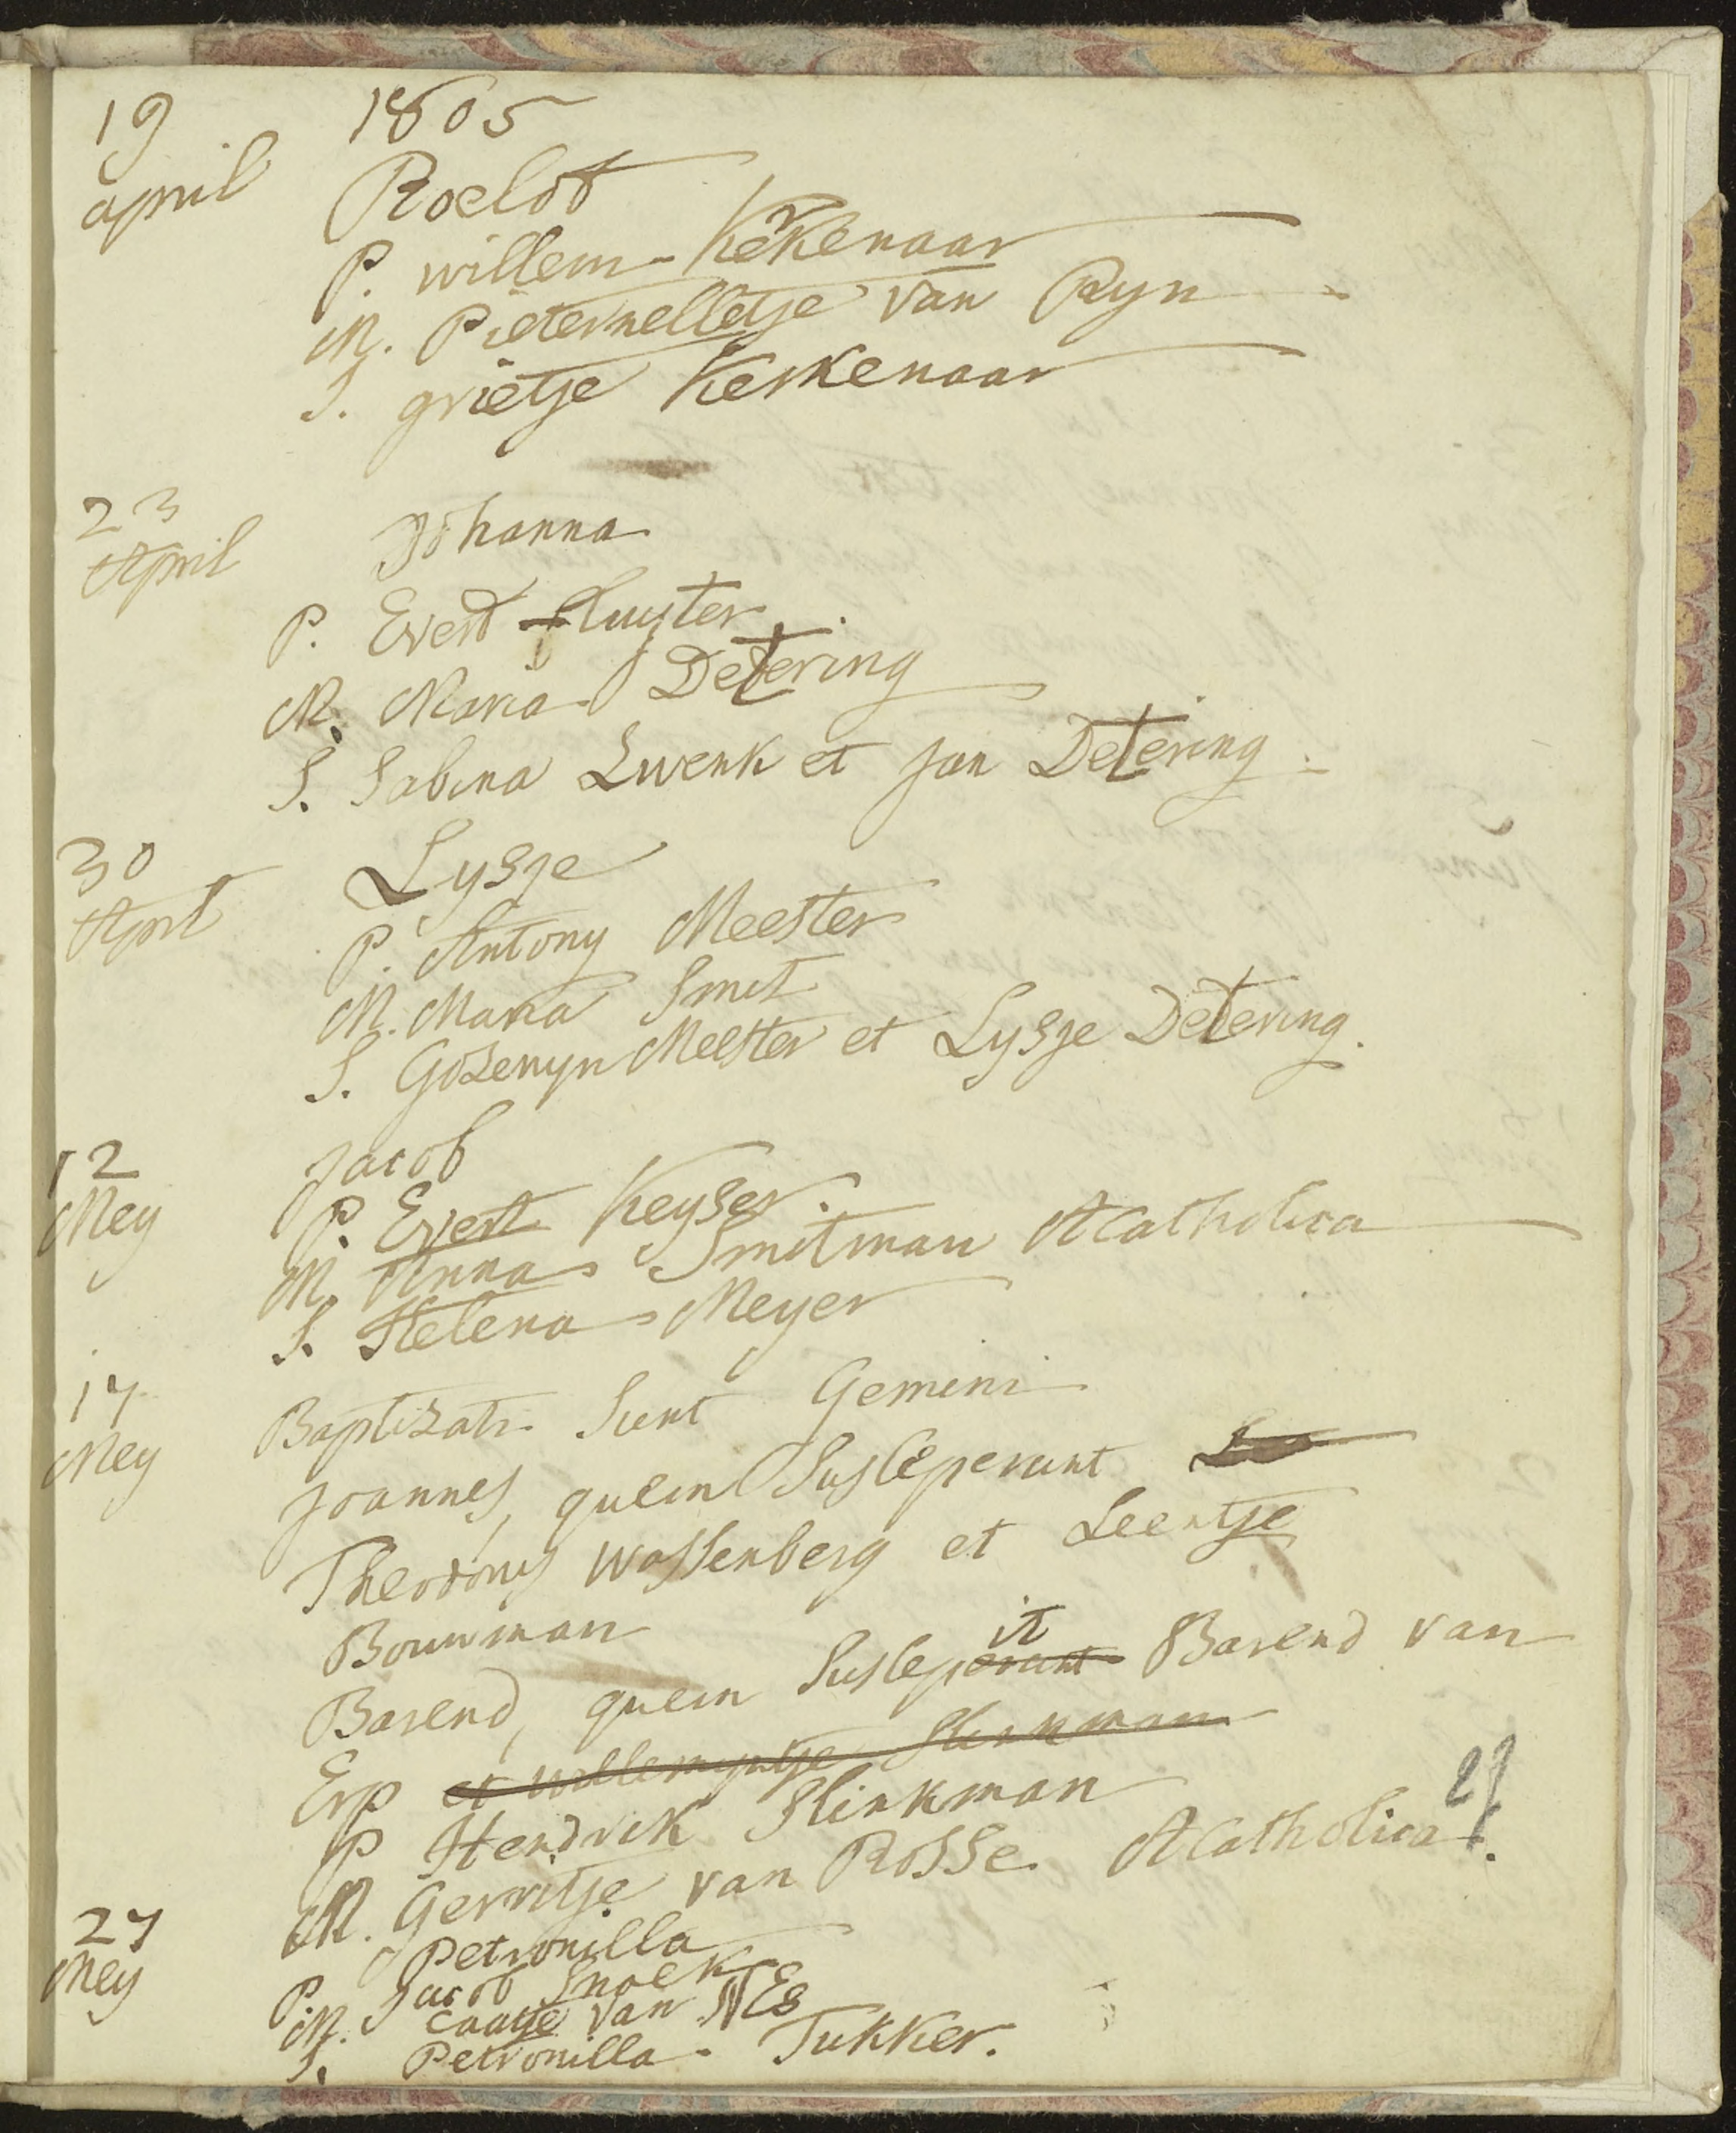 19 1805
april Roelof
P. willem Kerkenaar
M. Pieternelletje van Ryn
S. grietje Kerkenaar
23
April Johanna
P. Evert Kluyter
M. Maria Detering
S. Sabina Zwenk et Jan Detering.
30 Lysje
April
P. Antony Meester
M. Maria Smit
S. Gosewyn Meester et Lysje Detering.
12 Jacob
Mey P. Evert Keyser.
M. Anna Smitman Acatholica
S. Helena Meyer
17 Baptizati Sunt Gemini
Mey
Joannes, quem Susceperunt
Theodorus Wassenberg et Leentje
Bouwman
it
Barend, quem Susceperunt Barend van
Erp et willemyntje Slinkman
P Hendrik Slinkman
M. Gerritje van Rosse Acatholica.
27 Petronilla
Mey P. Jacob Snoek
M. Caatje van NEs
S. Petronilla Tukker.